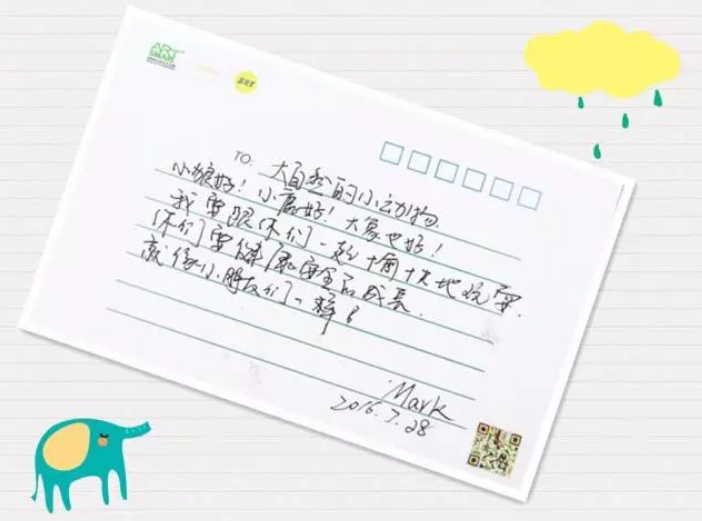 TO: 大自然的小动物.
小狼好! 小鹿好! 大象也好!
我要跟你们一起愉快地玩耍.
你们要健康安全后成长.
就像小朋友们一样!
Mark
2016.7.28